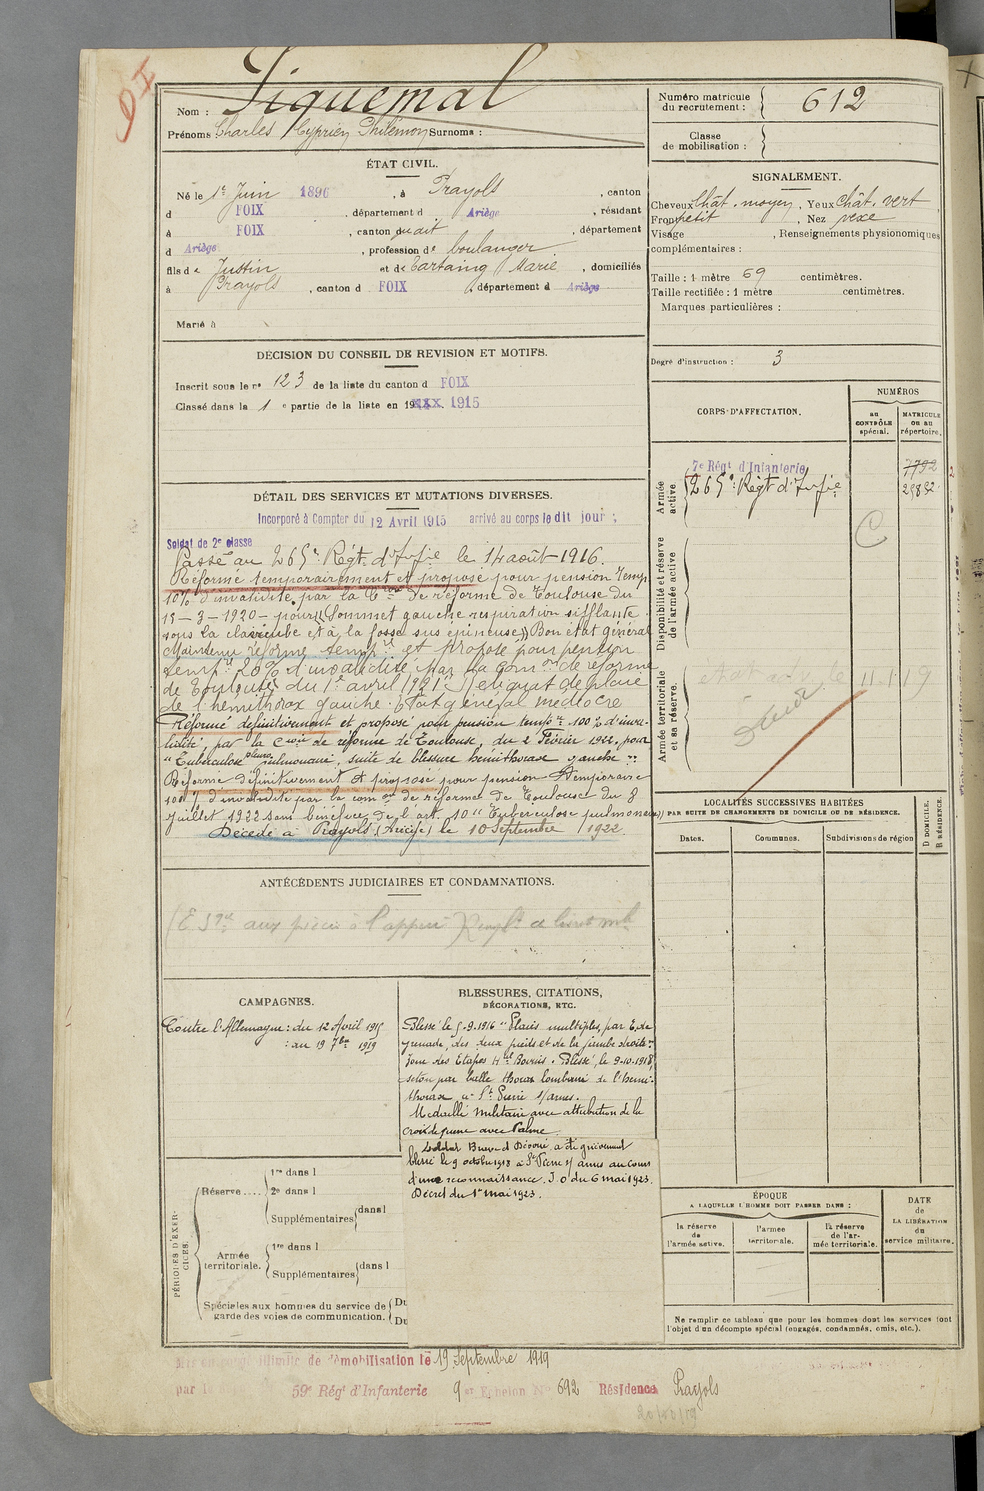 DI
Nom : Piquemal
Prénoms : Charles Cyprien Philémon Surnoms :
ÉTAT CIVIL.
Né le 1er Juin 1896, à Prayols, canton
d FOIX, département d Ariège, résidant
à FOIX, canton dudit, département
d Ariège, profession de boulanger
fils de Justin et de Tartaing Marie, domiciliés
à Prayols, canton d FOIX, département d Ariège
Marié à
DÉCISION DU CONSEIL DE REVISION ET MOTIFS.
Inscrit sous le no 123 de la liste du canton d FOIX
Classé dans la 1 e partie de la liste en 1915
DÉTAIL DES SERVICES ET MUTATIONS DIVERSES.
Incorporé à Compter du 12 Avril 1915 arrivé au corps le dit jour ;
Soldat de 2e classe
Passé au 265e Régt. d'Infie le 14 août 1916.
Réformé temporairement et proposé pour pension temp.
10% d'invalidité par la Con de réforme de Toulouse du
15-3-1920 - pour "Sommet gauche respiration sifflante
sous la clavicule et à la fosse sus épineuse" Bon état général
Maintenu réformé tempre et proposé pour pension
tempre 20% d'invalidité par la com on de réforme
de Toulouse du 1er avril 1921
de l'hémithorax gauche. Etat général médiocre
Réformé définitivement et proposé pour pension tempre 100% d'inva-
lidité, par la Con de réforme de Toulouse, du 2 Février 1922, pour
"Tuberculose pulmonaire, suite de blessure hémithorax gauche"
Réformé définitivement et proposé pour pension temporaire
100% d'invalidité par la com on de réforme de Toulouse du 8
juillet 1922 sans bénéfice de l'art. 10 "Tuberculose pulmonaire"
Décédé à Prayols (Ariège) le 10 Septembre 1922.
ANTÉCÉDENTS JUDICIAIRES ET CONDAMNATIONS.
aux pièces à l'appui
CAMPAGNES.
Contre l'Allemagne : du 12 Avril 1915
: au 19 7bre 1919
BLESSURES, CITATIONS,
DÉCORATIONS, ETC.
Blessé le 5-9-1916 "Plaies multiples, par E, de
grenade, des deux pieds et de la jambe droite"
Blessé, le 9-10-1918,
séton par balle thorax lombaire de l'hémi-
thorax à St Pierre s/arnes.
Médaillé militaire avec attribution de la
croix de guerre avec Palme
Soldat Brave et Dévoué, a été grièvement
blessé le 9 octobre 1918 à St Pierre s/ arnes au cours
d'une reconnaissance. J.O du 6 mai 1923.
Décret du 1er mai 1923.
PÉRIODES D'EXER-
CICES.
Réserve ....
1re dans l
2e dans l
Supplémentaires dans l
Armée
territoriale.
1re dans l
Supplémentaires dans l
Spéciales aux hommes du service de
garde des voies de communication.
Du
Du
Numéro matricule
du recrutement : 612
Classe
de mobilisation :
SIGNALEMENT.
Cheveux Chât. moyen, Yeux chât. vert
Front petit, Nez vexe
Visage , Renseignements physionomiques
complémentaires :
Taille : 1 mètre 69 centimètres.
Taille rectifiée : 1 mètre centimètres.
Marques particulières :
Degré d'instruction : 3
CORPS D'AFFECTATION.
NUMÉROS
au
CONTRÔLE
spécial.
MATRICULE
ou au
répertoire.
Armée
active
7e Régt d'Infanterie
7792
265e Régt d'Infie
C
Disponibilité et réserve
de l'armée active
Armée territoriale
et sa réserve.
LOCALITÉS SUCCESSIVES HABITÉES
PAR SUITE DE CHANGEMENTS DE DOMICILE OU DE RÉSIDENCE.
Dates.
Communes.
Subdivisions de région
D DOMICILE.
R RÉSIDENCE.
ÉPOQUE
A LAQUELLE L'HOMME DOIT PASSER DANS :
la réserve
de
l'armée active.
l'armée
territoriale.
la réserve
de l'ar-
mée territoriale.
DATE
de
LA LIBÉRATION
du
service militaire.
Ne remplir ce tableau que pour les hommes dont les services font
l'objet d'un décompte spécial (engagés, condamnés, omis, etc.).
Mis en congé illimité de démobilisation le 19 Septembre 1919
par le 59e Régt d'Infanterie 9e Echelon No 692 Résidence Prayols